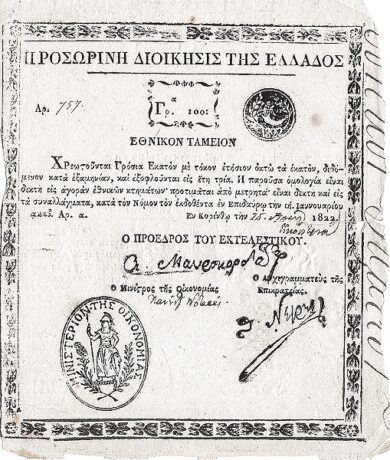 ΠΡΟΣΩΡΙΝΗ ΔΙΟΙΚΗΣΙΣ ΤΗΣ ΕΛΛΑΔΟΣ
Αρ. 757.
Γρ.α 100:
ΕΘΝΙΚΟΝ ΤΑΜΕΙΟΝ
Χρεωςοῦνται Γρόσια Εκατὸν μὲ τόκον ἐτήσιον ὀκτὼ τὰ ἑκατὸν, διδό-
μενον κατὰ ἑξαμηνίαν, καὶ ἐξοφλοῦνται εἰς ἔτη τρία. Η παροῦσα ὁμολογία εἶναι
δεκτὴ εἰς ἀγορὰν ἐθνικῶν κτημάτων προτιμᾶται ἀπὸ μετρητὰ εἶναι δεκτὴ καὶ εἰς
τὰ συναλλάγματα, κατὰ τὸν Νόμον τὸν ἐκδοθέντα ἐν Επιδαύρῳ τὴν ιή. Ιαννουαρίου
αωκβ. Αρ. α.
Εν Κορίνθῳ τὴν 25. 1822
Ο ΠΡΟΕΔΡΟΣ ΤΟΥ ΕΚΤΕΛΕΣΤΙΚΟΥ.
Α. Μαυροκορδάτος
Ο Μινίςρος τῆς Οικονομίας
Ο Αρχιγραμματεὺς τῆς
Επικρατείας.
Νέγρης
ΜΙΝΙΣΤΕΡΙΟΝ ΤΗΣ ΟΙΚΟΝΟΜΙΑΣ